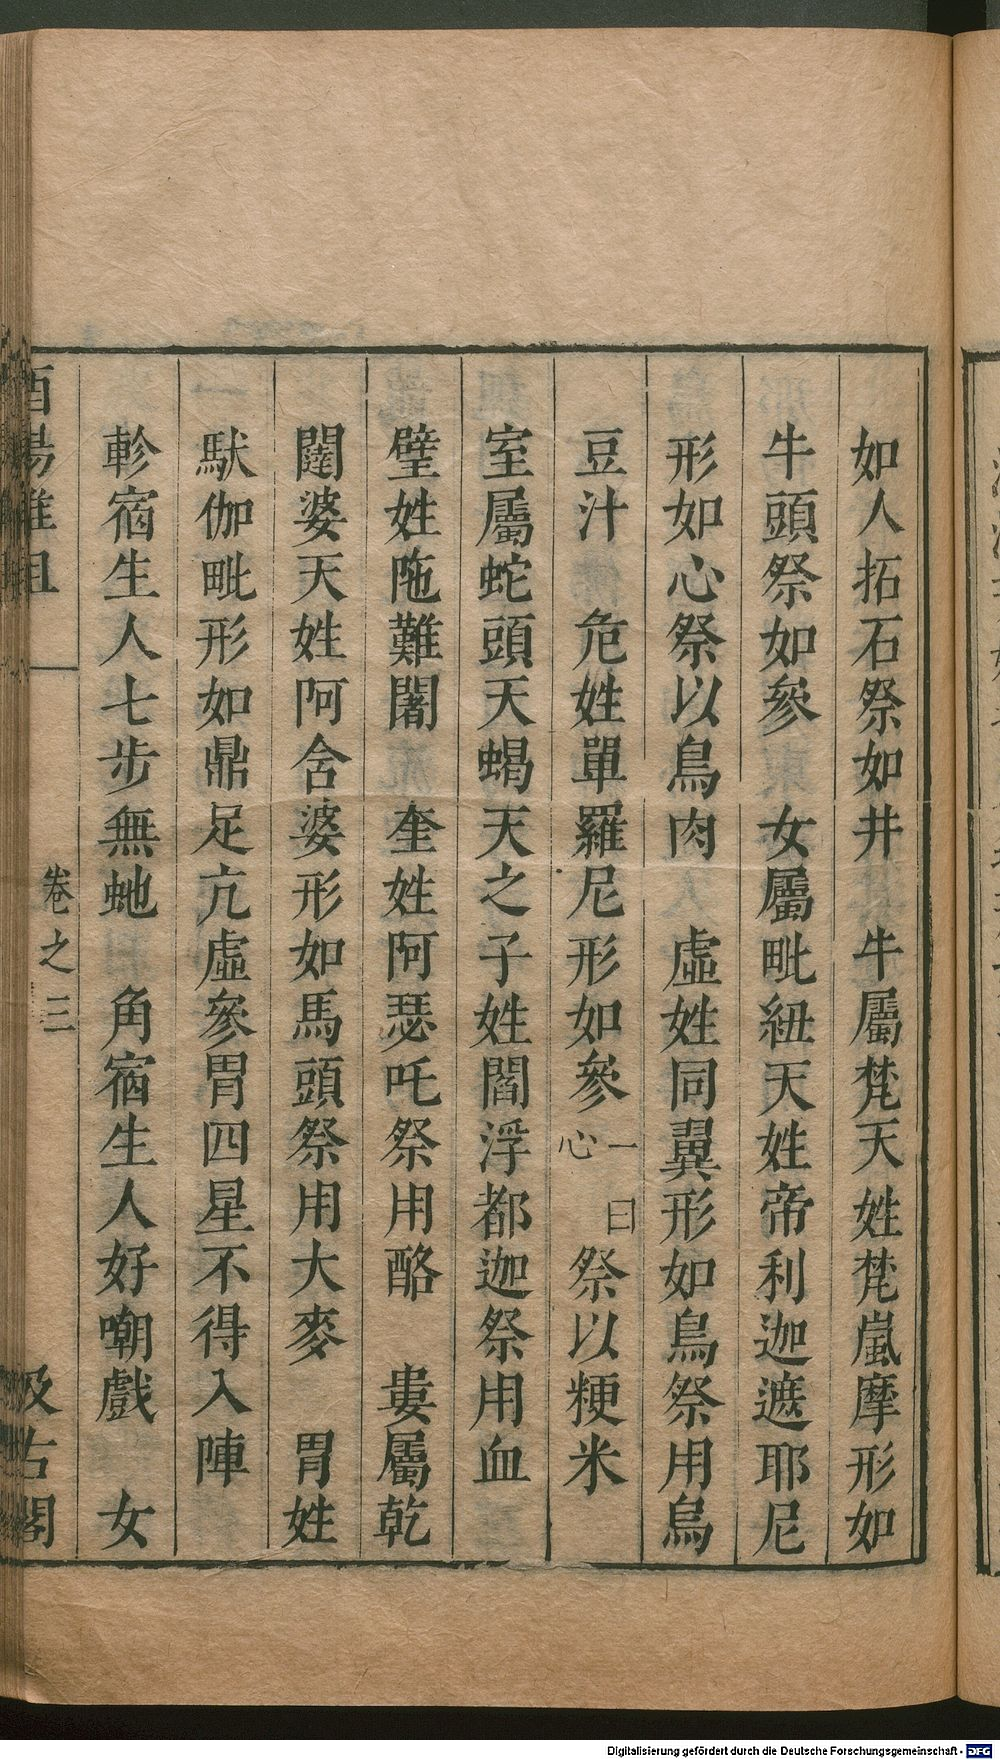 如人拓石祭如井　牛屬梵天姓梵嵐摩形如
牛頭祭如參　女屬毗紐天姓帝利迦遮耶尼
形如心祭以鳥肉　虛姓同翼形如鳥祭用烏
豆汁　危姓單羅尼形如參一曰心祭以粳米
室屬蛇頭天蝎天之子姓閻浮都迦祭用血
壁姓陁難闍　奎姓阿瑟吒祭用酪　婁屬乾
闥婆天姓阿舍婆形如馬頭祭用大麥　胃姓
馱伽毗形如鼎足亢虛參胃四星不得入陣
軫宿生人七步無虵　角宿生人好嘲戲　女
酉陽雜俎
卷之三
汲古閣
Digitalisierung gefördert durch die Deutsche Forschungsgemeinschaft - DFG